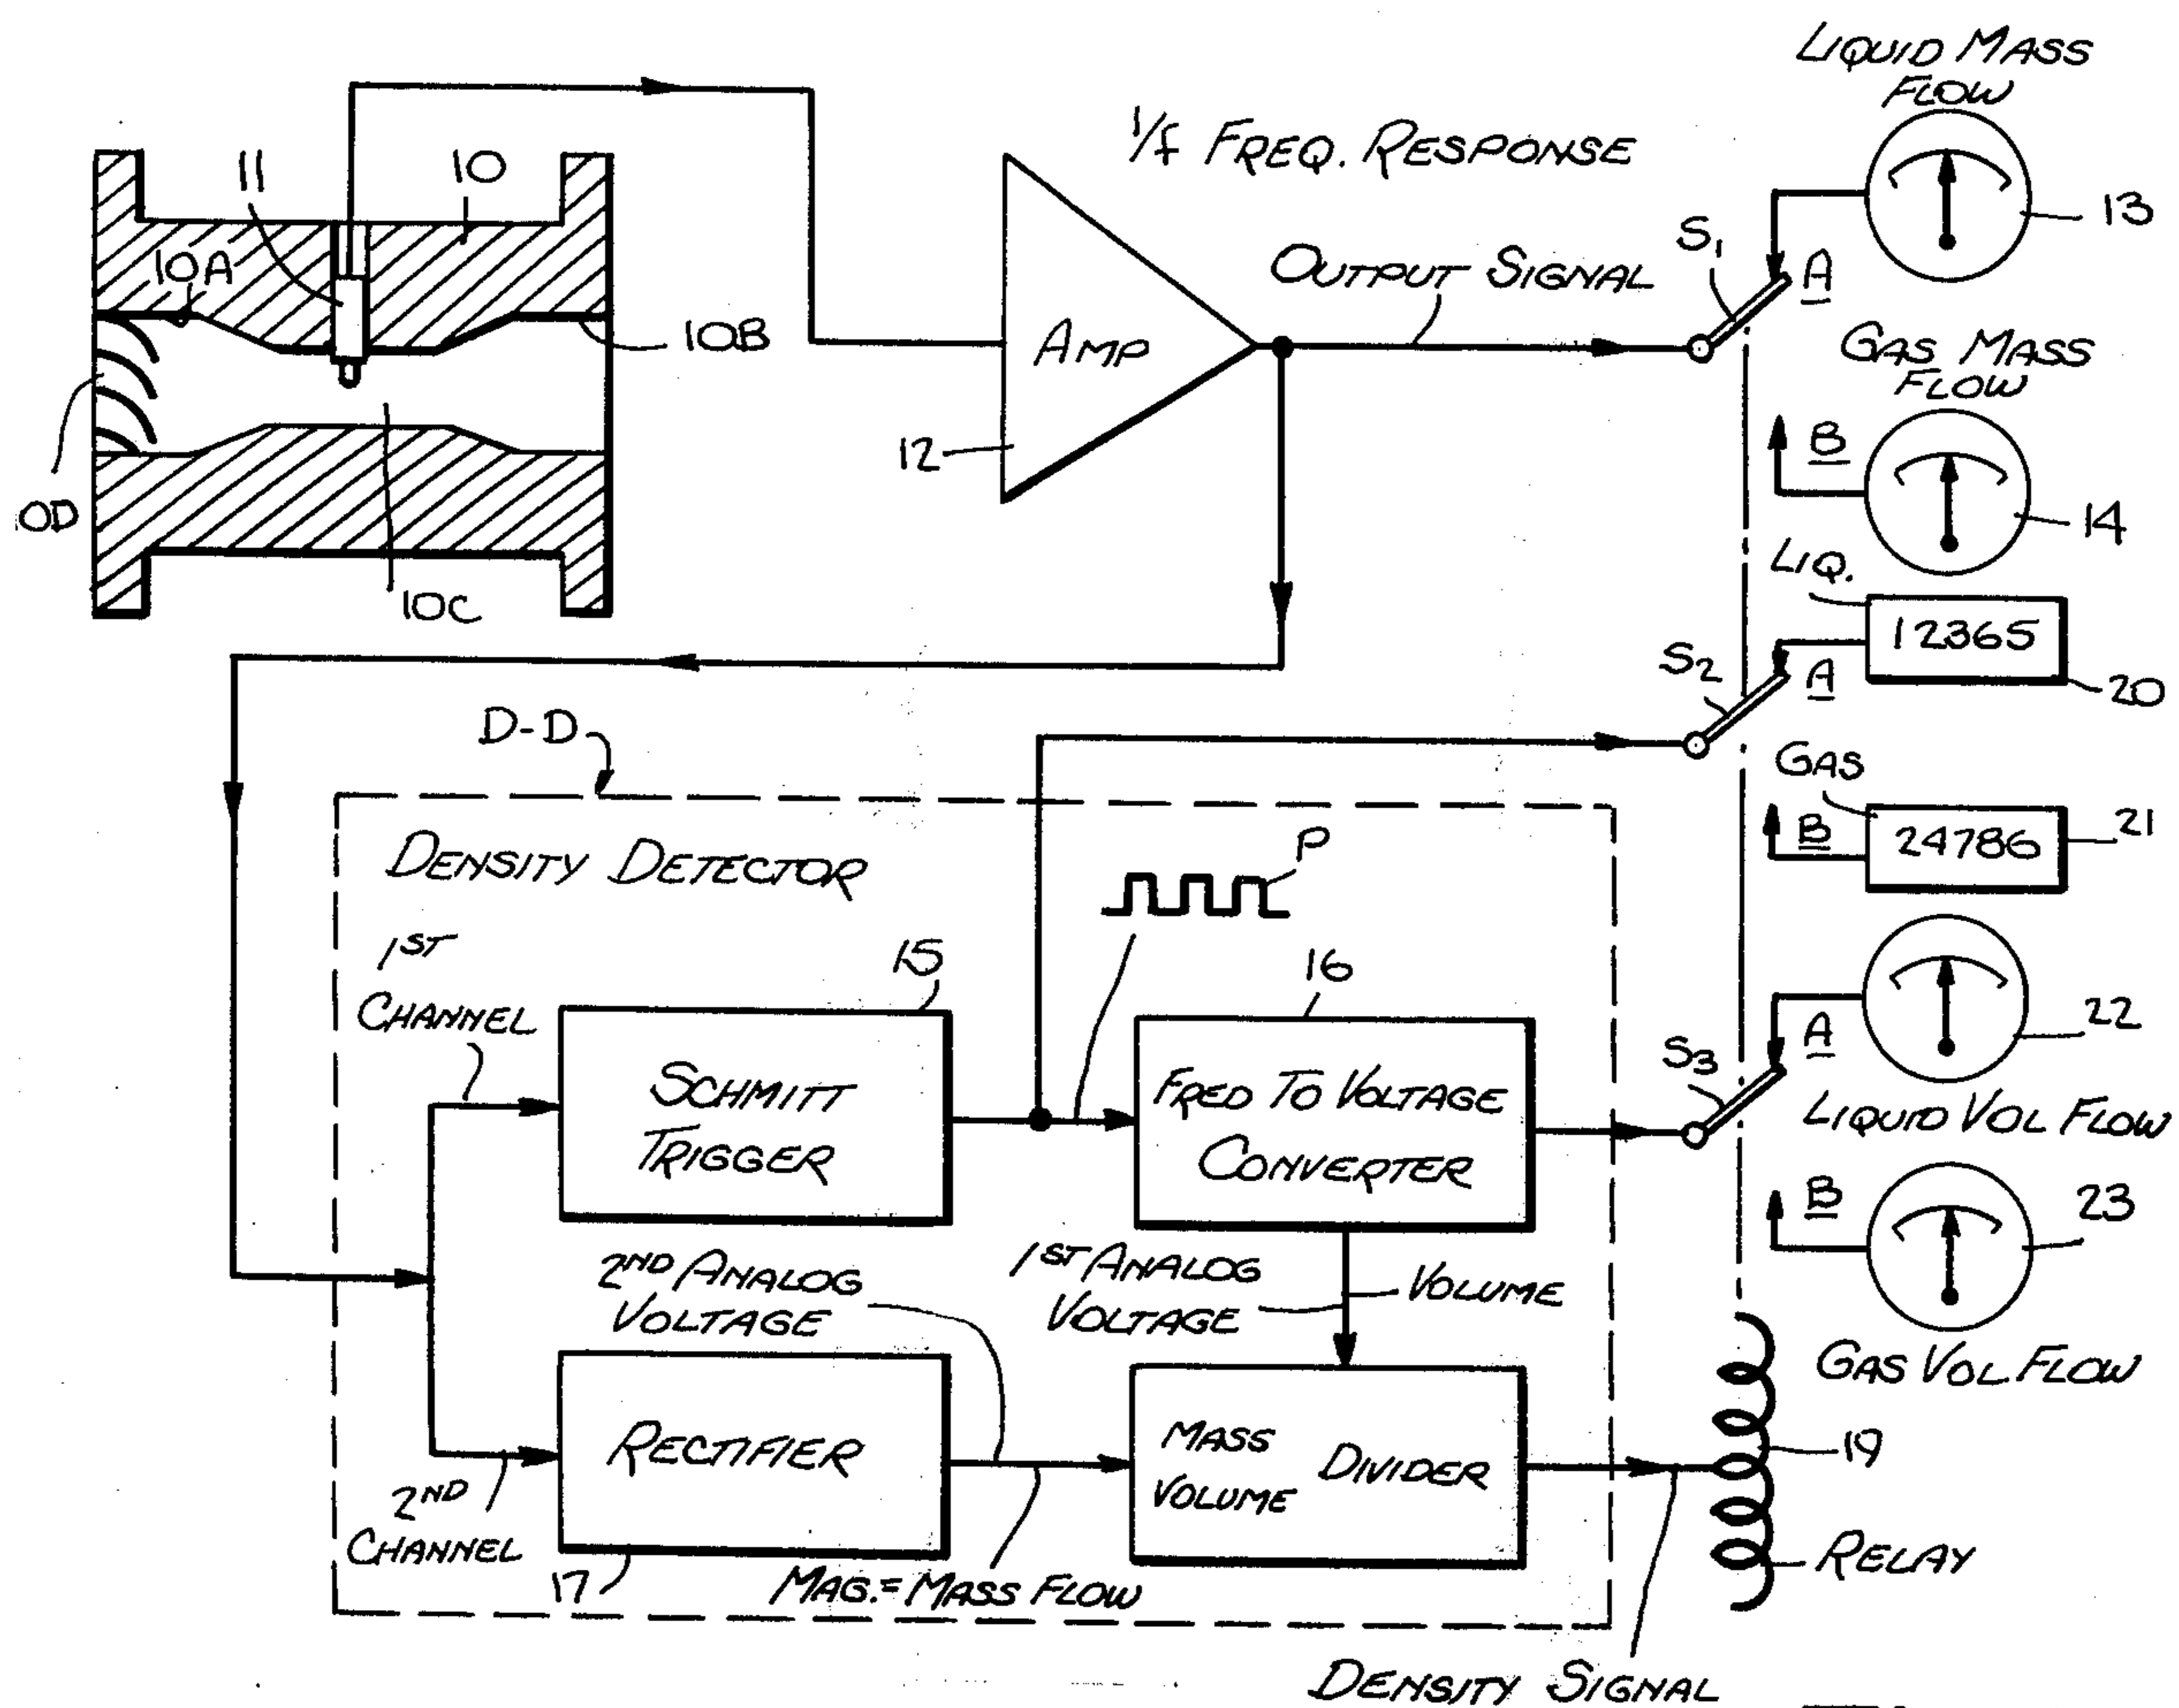 LIQUID MASS
FLOW
1/f FREQ. RESPONSE
11
10
13
10A
S1
A
OUTPUT SIGNAL
10B
AMP
GAS MASS
FLOW
12
B
10D
14
LIQ.
10C
12365
S2
A
20
D-D
GAS
DENSITY DETECTOR
P
B
24786
21
1ST
CHANNEL
15
16
22
A
S3
SCHMITT
TRIGGER
FRED TO VOLTAGE
CONVERTER
LIQUID VOL FLOW
B
23
2ND ANALOG
VOLTAGE
1ST ANALOG
VOLTAGE
VOLUME
GAS VOL. FLOW
RECTIFIER
MASS
VOLUME
DIVIDER
19
2ND
CHANNEL
17
MAG. = MASS FLOW
RELAY
DENSITY SIGNAL